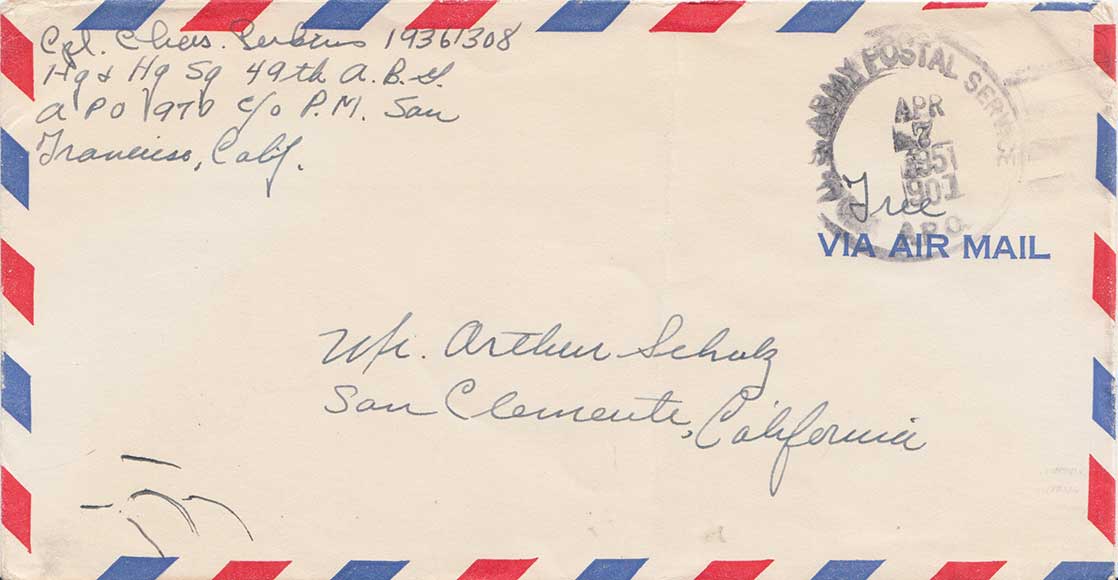 Cpl. Chas. Perkins 19361308
Hq & Hq Sq 49th A.B.G.
APO 970 c/o P.M. San
Francisco, Calif.
U.S. ARMY POSTAL SERVICE
APR
7
1951
901
A.P.O.
Free
VIA AIR MAIL
Mr. Arthur Schulz
San Clemente, California